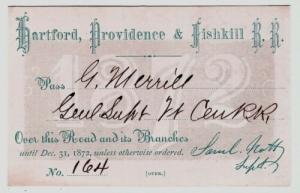 Hartford, Providence & Fishkill R. R.
1872
Pass G. Merrill
Genl Supt Vt Cen RR.
Over this Road and its Branches
until Dec. 31, 1872, unless otherwise ordered.
No. 164 [OVER.]
Saml Nott
Supt.